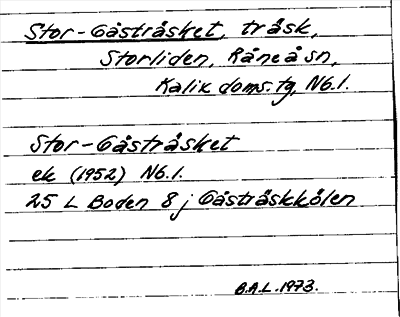 Stor-Gåsträsket, träsk,
Storliden, Råneå sn,
Kalix doms. tg, Nb.l.
Stor-Gåsträsket
ek (1952) Nb.l.
25 L Boden 8 j Gåsträskkölen
B.A.L. 1973.